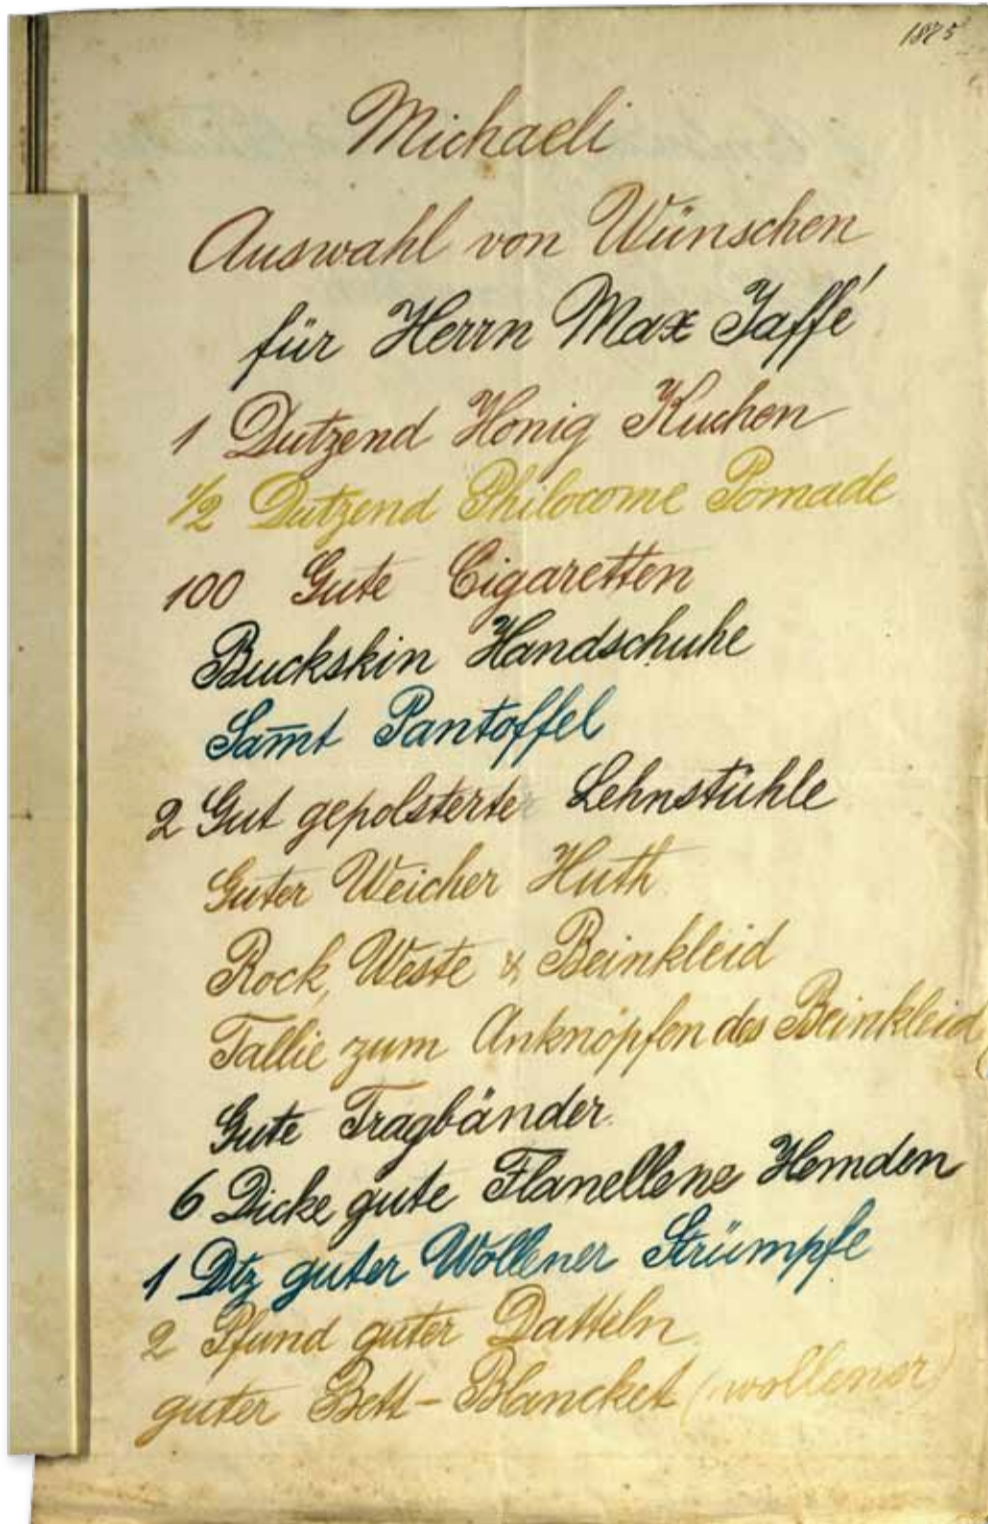 1875
Michaeli
Auswahl von Wünschen
für Herrn Max Jaffé
1 Dutzend Honig Kuchen
1/2 Dutzend Philocome Pomade
100 Gute Cigaretten
Buckskin Handschuhe
Sam̅t Pantoffel
2 Gut gepolsterte Lehnstühle
Guter Weicher Huth
Rock, Weste & Beinkleid
Tallie zum Anknöpfen des Beinkleid
Gute Tragbänder.
6 Dicke gute Flanellene Hemden
1 Dtz guter Wollener Strümpfe
2 Pfund guter Datteln
guter Bett-Blancket (wollener)